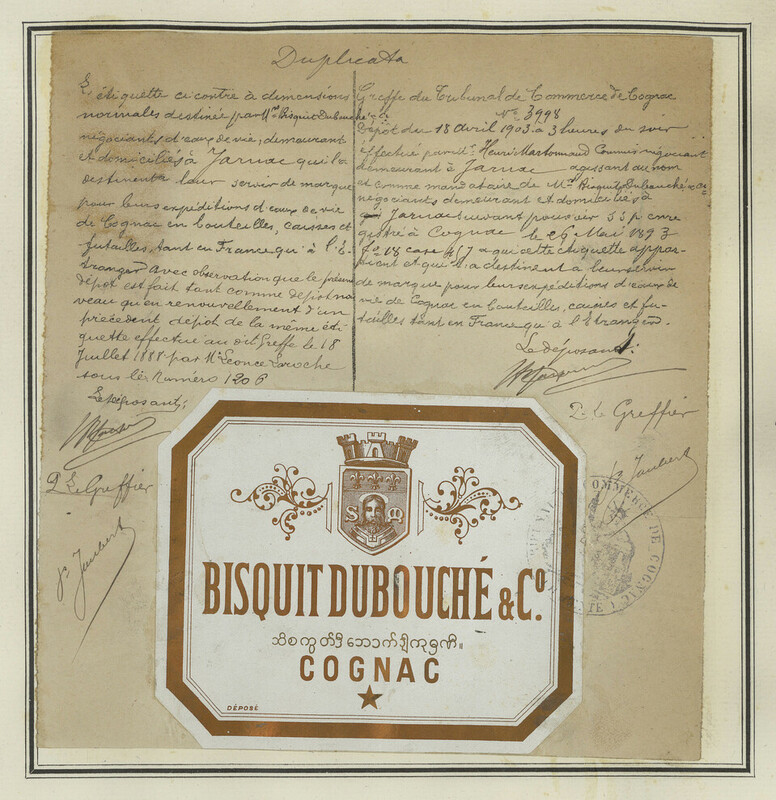 Duplicata
L'étiquette ci contre à dimensions
normales destinée par Mrs Bisquit Dubouché & Co
négociants d'eaux de vie, demeurant
et domiciliés à Jarnac qu'ils
destinent à leur servir de marque
pour leurs expéditions d'eaux de vie
de Cognac en bouteilles, caisses et
futailles, tant en France qu'à l'É-
tranger. Avec observation que le présent
dépôt est fait tant comme dépôt nou
veau qu'en renouvellement d'un
précédent dépôt de la même éti
quette effectué au dit Greffe le 18
Juillet 1888 par Mr Léonce Laroche
sous le Numéro 1206
Le déposant;
P. Le Greffier
Jaubert
Greffe du Tribunal de Commerce de Cognac
No 3998
Dépôt du 18 avril 1903 à 3 heures du soir
effectué par Mr Henri Martonnaud Commis négociant
demeurant à Jarnac agissant au nom
et comme mandataire de Mrs Bisquit Dubouché & Co
négociants demeurant et domiciliés à
Jarnac suivant pouvoir s s p enre
gistré à Cognac le 26 Mai 1893
fo 18 case 4/7 a qui cette étiquette appar-
tient et qui la destinent à leur servir
de marque pour leurs expéditions d'eaux de
vie de Cognac en bouteilles, caisses et fu-
tailles tant en France qu'à l'Etranger.
Le déposant:
P. Le Greffier
Jaubert
COMMERCE DE COGNAC
S M
BISQUIT DUBOUCHÉ & Co.
COGNAC
DÉPOSÉ